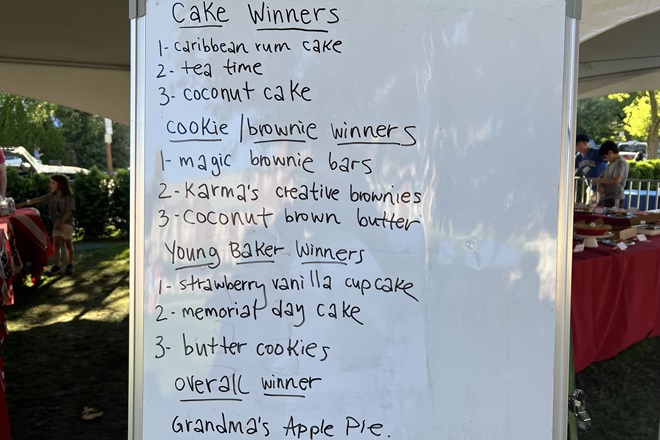 Cake Winners
1- caribbean rum cake
2- tea time
3- coconut cake
cookie/brownie winners
1- magic brownie bars
2- Karma's creative brownies
3- coconut brown butter
Young Baker Winners
1- strawberry vanilla cupcake
2- memorial day cake
3- butter cookies
overall winner
Grandma's Apple Pie.